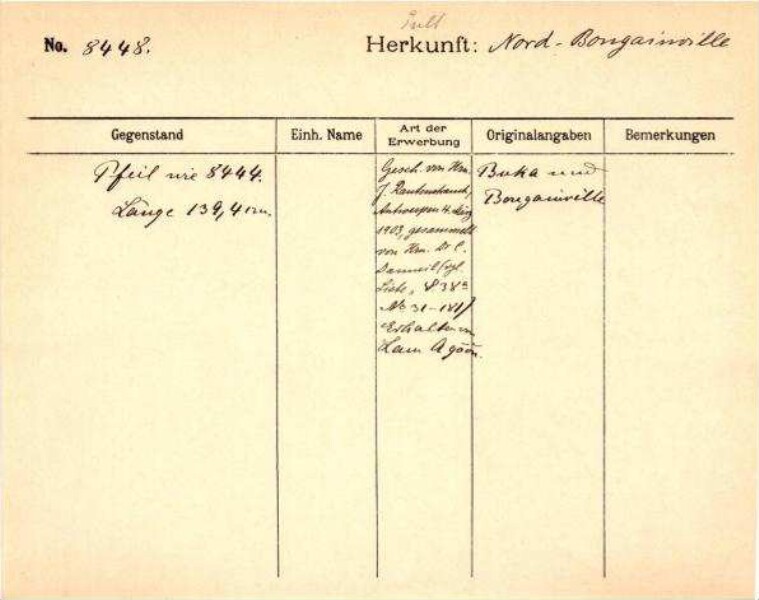 No. 8448.
Herkunft: Nord-Bougainville
Gegenstand
Einh. Name
Art der
Erwerbung
Originalangaben
Bemerkungen
Pfeil wie 8444.
Länge 139,4 cm.
Gesch. von Hrn.
J. Rautenstrauch,
Antwerpen 4. März
1903, gesammelt
von Hrn. Dr. C.
Danneil (vgl.
Liste, 838a
No 31-181)
Erhalten von
Buka und
Bougainville